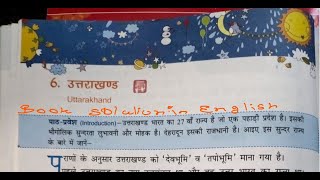 6. उत्तराखण्ड
Uttarakhand
Book solution in English
पाठ-प्रवेश (Introduction)–उत्तराखण्ड भारत का 27 वाँ राज्य है जो एक पहाड़ी प्रदेश है। इसकी
भौगोलिक सुन्दरता लुभावनी और मोहक है। देहरादून इसकी राजधानी है। आइए इस सुन्दर राज्य
के बारे में जानें–
पुराणों के अनुसार उत्तराखण्ड को 'देवभूमि' व 'तपोभूमि' माना गया है।